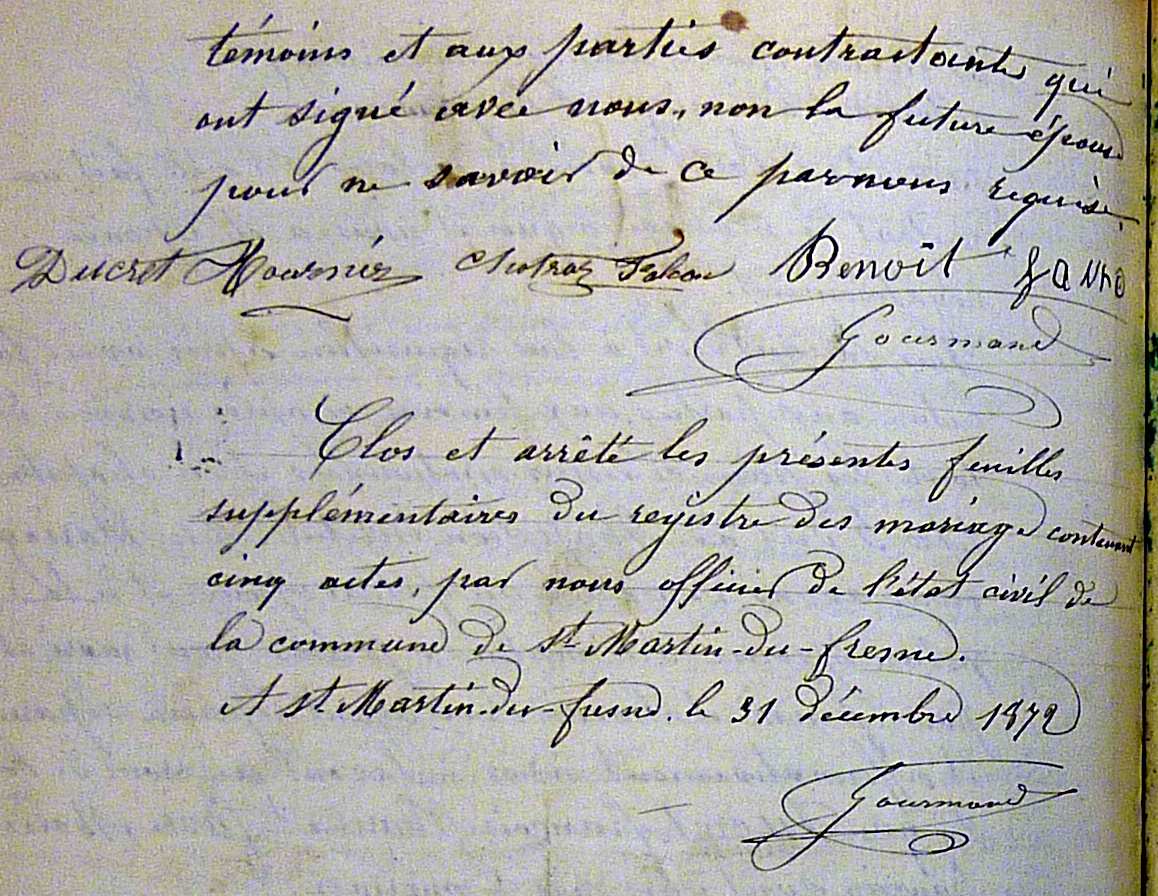 témoins et aux parties contractantes qui
ont signé avec nous, non la future épouse
pour ne savoir de ce par nous requise
Ducret Mournier Benoît
Gourmand
Clos et arrêté les présentes feuilles
supplémentaires du registre des mariage contenant
cinq actes, par nous officier de l'état civil de
la commune de St Martin-du-fresne.
A St Martin-du-fresne. le 31 décembre 1872
Gourmand